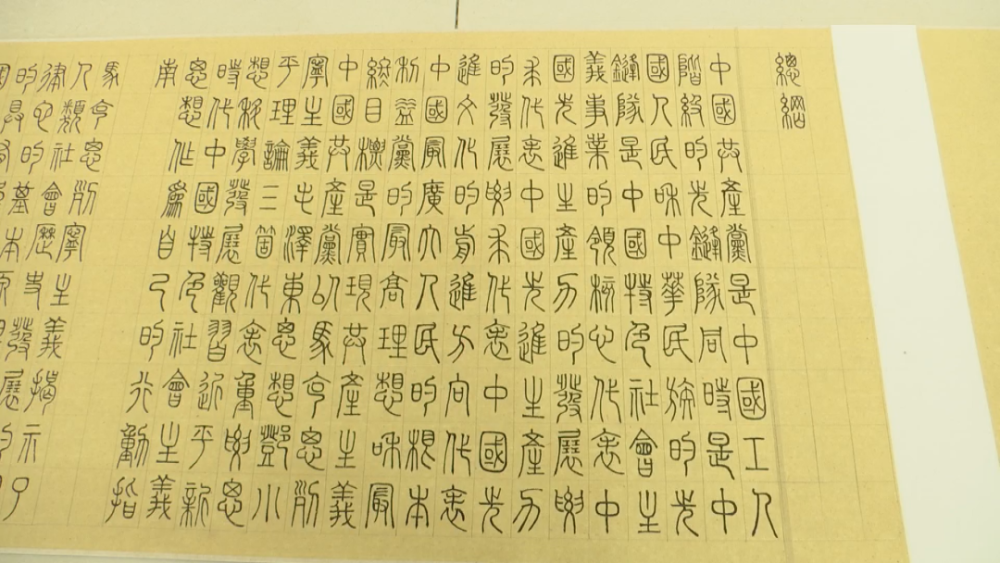 總綱
中國共產黨是中國工人
階級的先鋒隊同時是中
國人民和中華民族的先
鋒隊是中國特色社會主
義事業的領核心代表中
國先進生產力的發展要
求代表中國先進生產力
的發展要求代表中國先
進文化的前進方向代表
中國最廣大人民的根本
利益黨的最高理想和最
終目標是實現共產主義
中國共產黨以馬克思列
寧主義毛澤東思想鄧小
平理論三箇代表重要思
想科學發展觀習近平新
時代中國特色社會主義
思想作為自己的行動指
南
馬克思列寧主義揭示了
人類社會歷史發展的
律它的基本原
的具